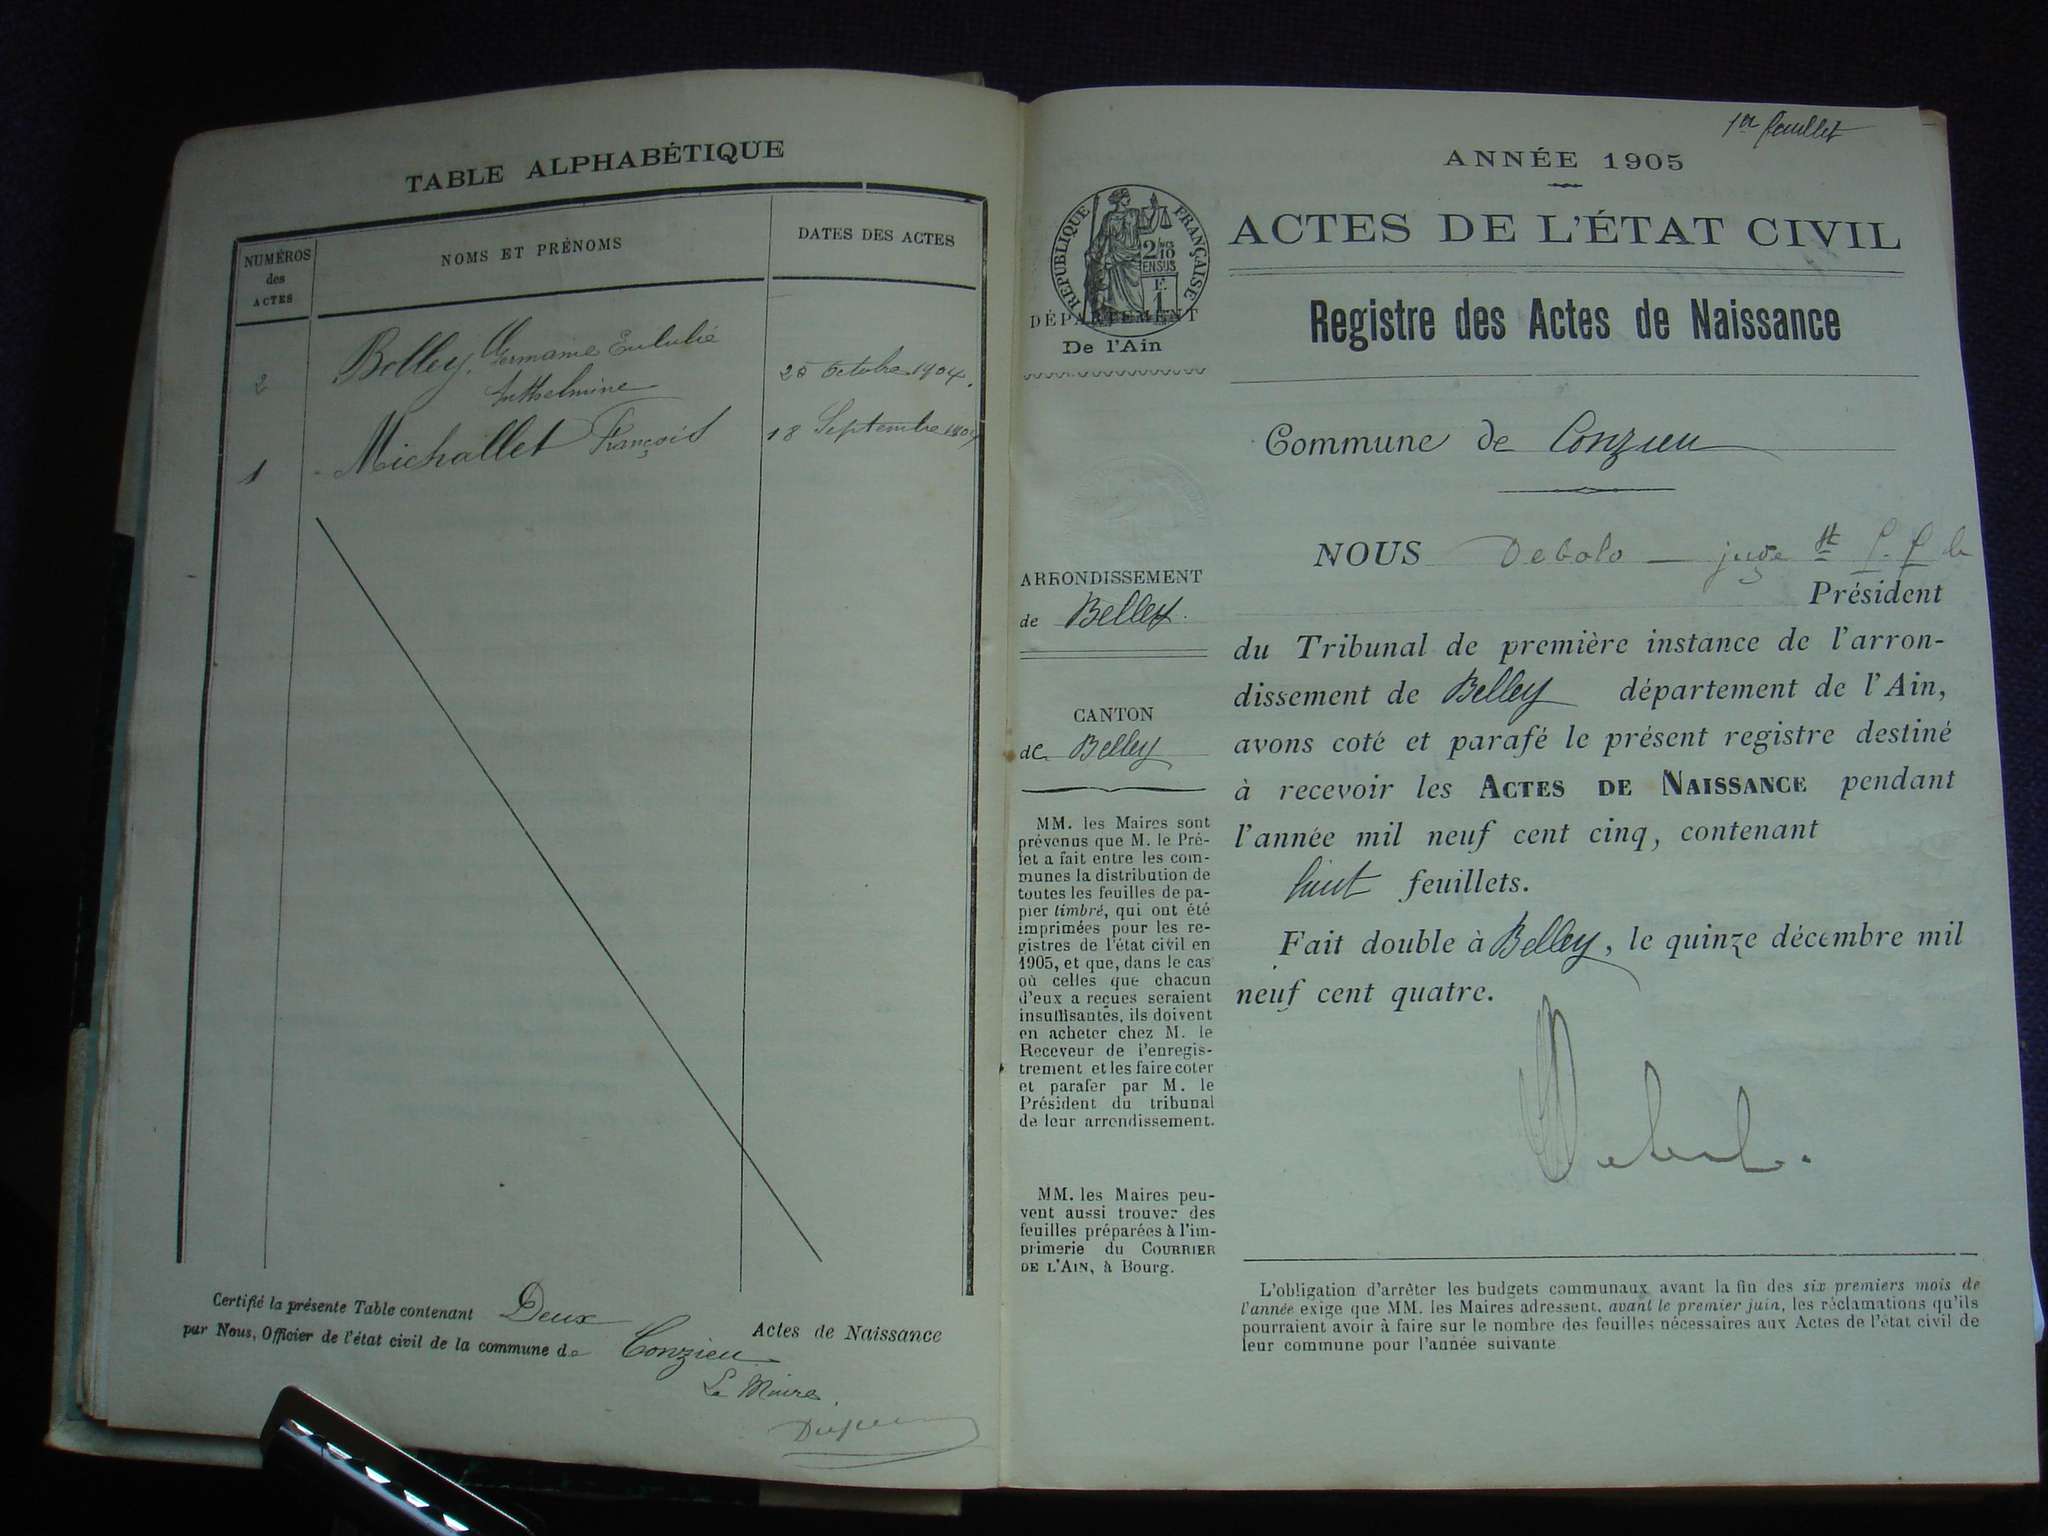 TABLE ALPHABÉTIQUE
NUMÉROS
des
ACTES
NOMS ET PRÉNOMS
DATES DES ACTES
2
Belley, Germanie Eulalie
Anthelmine
25 Octobre 1904.
1
Michallet François
18 Septembre 1904
Certifié la présente Table contenant Deux Actes de Naissance
par Nous, Officier de l'état civil de la commune de Conzieu
Le Maire
1er feuillet
ANNÉE 1905
RÉPUBLIQUE FRANÇAISE
2/10
EN SUS
F.
1
DÉPARTEMENT
De l'Ain
ARRONDISSEMENT
de Belley.
CANTON
de Belley
MM. les Maires sont
prévenus que M. le Pré-
fet a fait entre les com-
munes la distribution de
toutes les feuilles de pa-
pier timbré, qui ont été
imprimées pour les re-
gistres de l'état civil en
1905, et que, dans le cas
où celles que chacun
d'eux a reçues seraient
insuffisantes, ils doivent
en acheter chez M. le
Receveur de l'enregis-
trement et les faire coter
et parafer par M. le
Président du tribunal
de leur arrondissement.
MM. les Maires peu-
vent aussi trouver des
feuilles préparées à l'im-
primerie du COURRIER
DE L'AIN, à Bourg.
ACTES DE L'ÉTAT CIVIL
Registre des Actes de Naissance
Commune de Conzieu
NOUS Debolo — juge
Président
du Tribunal de première instance de l'arron-
dissement de Belley département de l'Ain,
avons coté et parafé le présent registre destiné
à recevoir les ACTES DE NAISSANCE pendant
l'année mil neuf cent cinq, contenant
huit feuillets.
Fait double à Belley, le quinze décembre mil
neuf cent quatre.
L'obligation d'arrêter les budgets communaux avant la fin des six premiers mois de
l'année exige que MM. les Maires adressent, avant le premier juin, les réclamations qu'ils
pourraient avoir à faire sur le nombre des feuilles nécessaires aux Actes de l'état civil de
leur commune pour l'année suivante